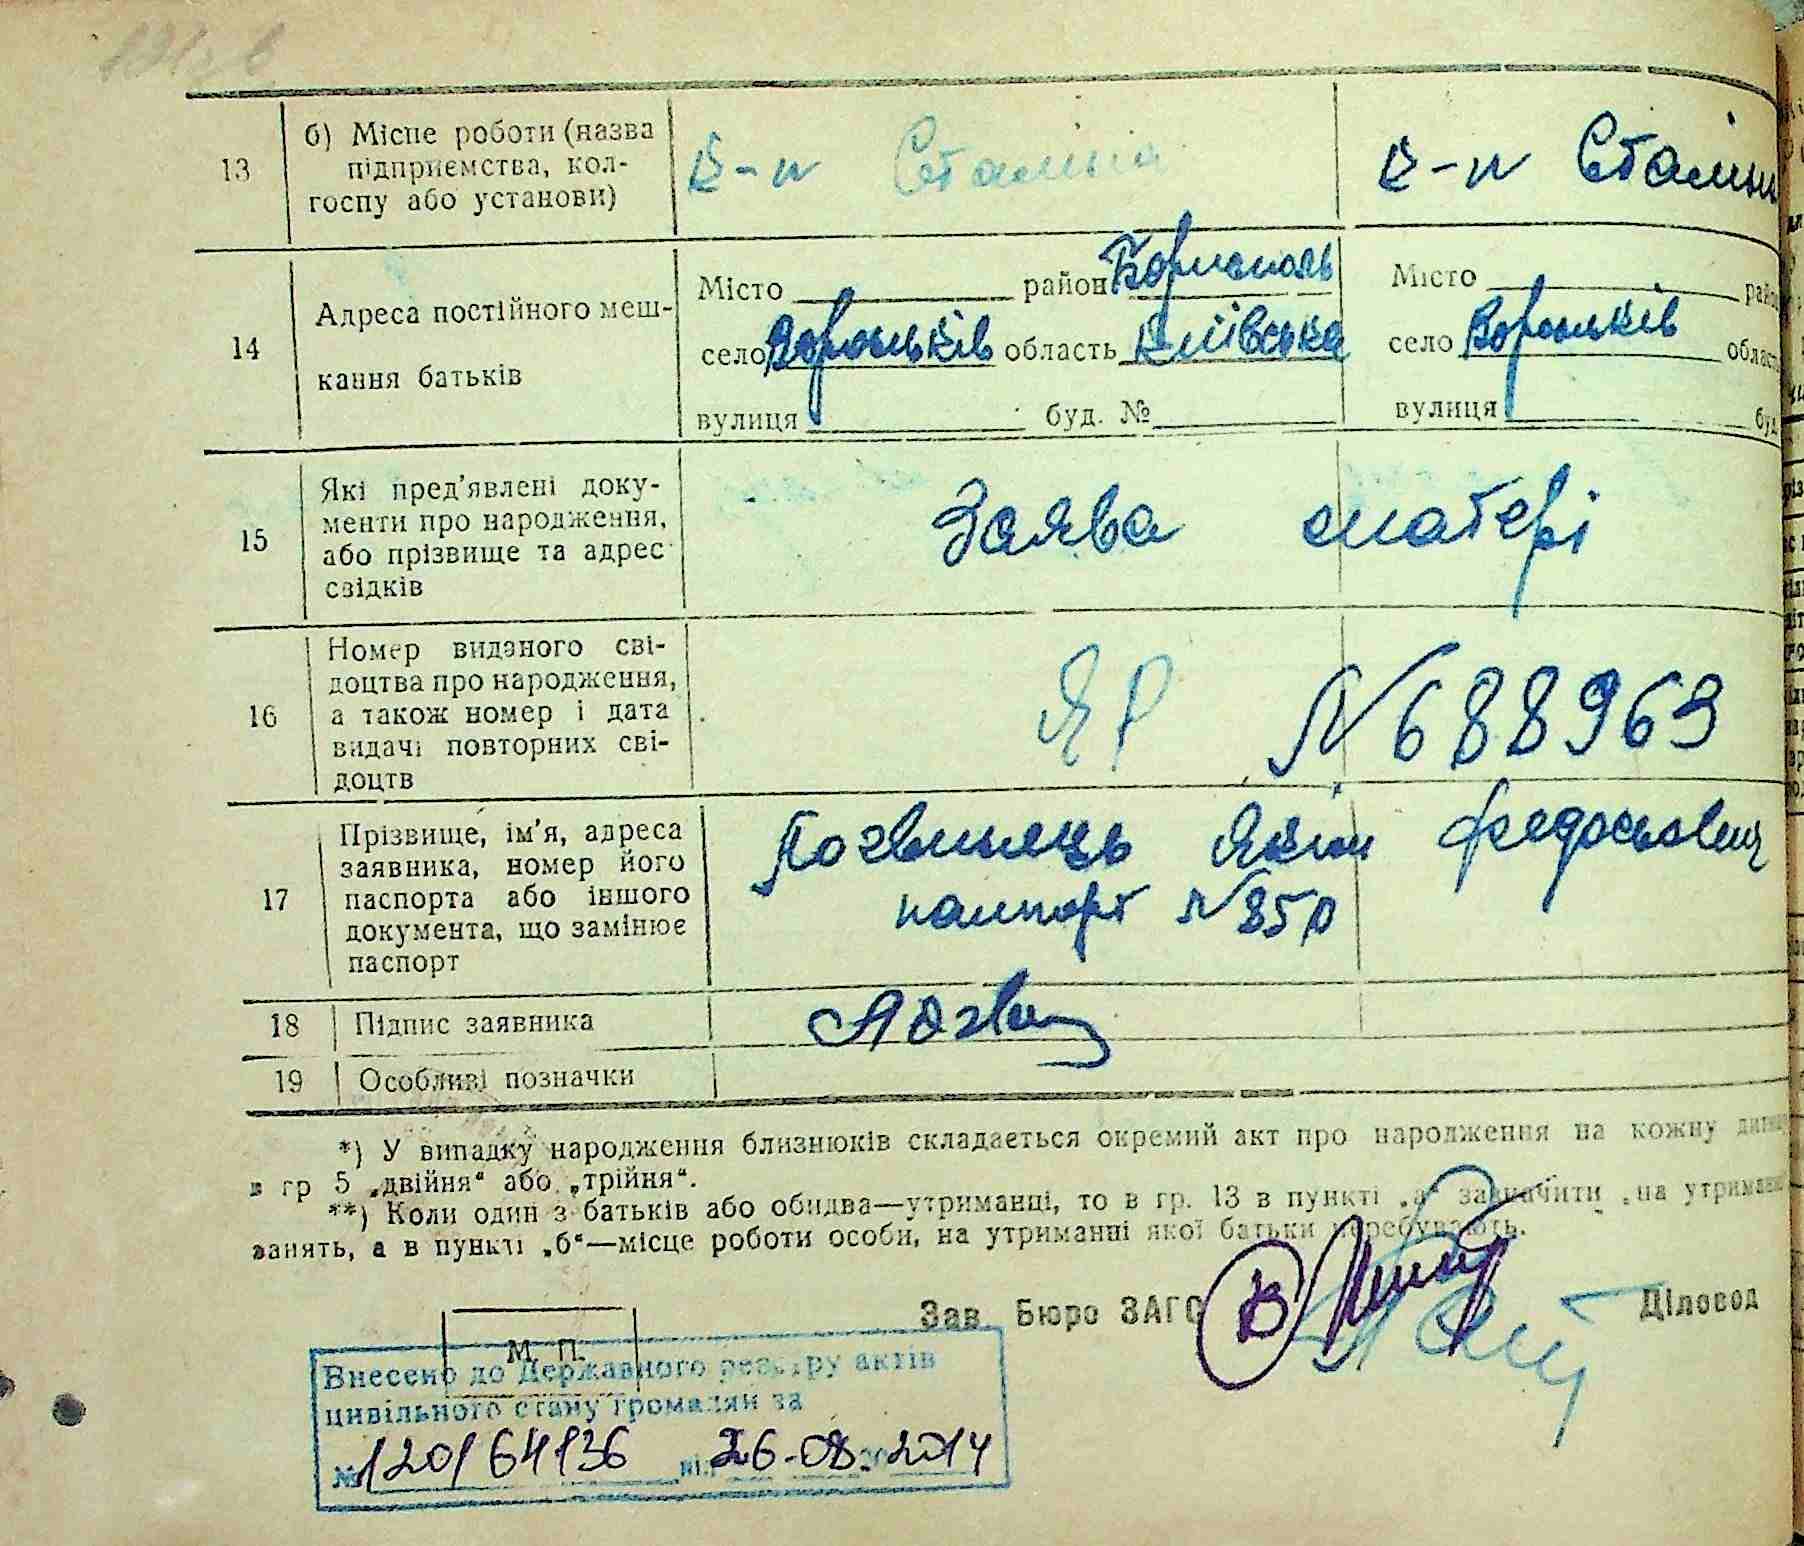 13
б) Місце роботи (назва
підприємства, кол-
госпу або установи)
к-п Сталіна
к-п Сталіна
14
Адреса постійного меш-
кання батьків
Місто район Бориспіль
село Вороньків область Київська
вулиця буд. №
Місто район
село Вороньків область
вулиця буд.
15
Які пред'явлені доку-
менти про народження,
або прізвище та адрес
свідків
Заява матері
16
Номер виданого сві-
доцтва про народження,
а також номер і дата
видачі повторних сві-
доцтв
ЯР N 688963
17
Прізвище, ім'я, адреса
заявника, номер його
паспорта або іншого
документа, що замінює
паспорт
Логвинець Яким Федосьович
паспорт N 850
18
Підпис заявника
19
Особливі позначки
*) У випадку народження близнюків складається окремий акт про народження на кожну
в гр 5 „двійня“ або „трійня“.
**) Коли один з батьків або обидва—утриманці, то в гр. 13 в пункті „а“ зазначити „на
занять, а в пункті „б“—місце роботи особи, на утриманні якої батьки перебувають.
Зав. Бюро ЗАГС
Діловод
М. П.
Внесено до Державного реєстру актів
цивільного стану громадян за
№ 120/64136 від 26-08-2014